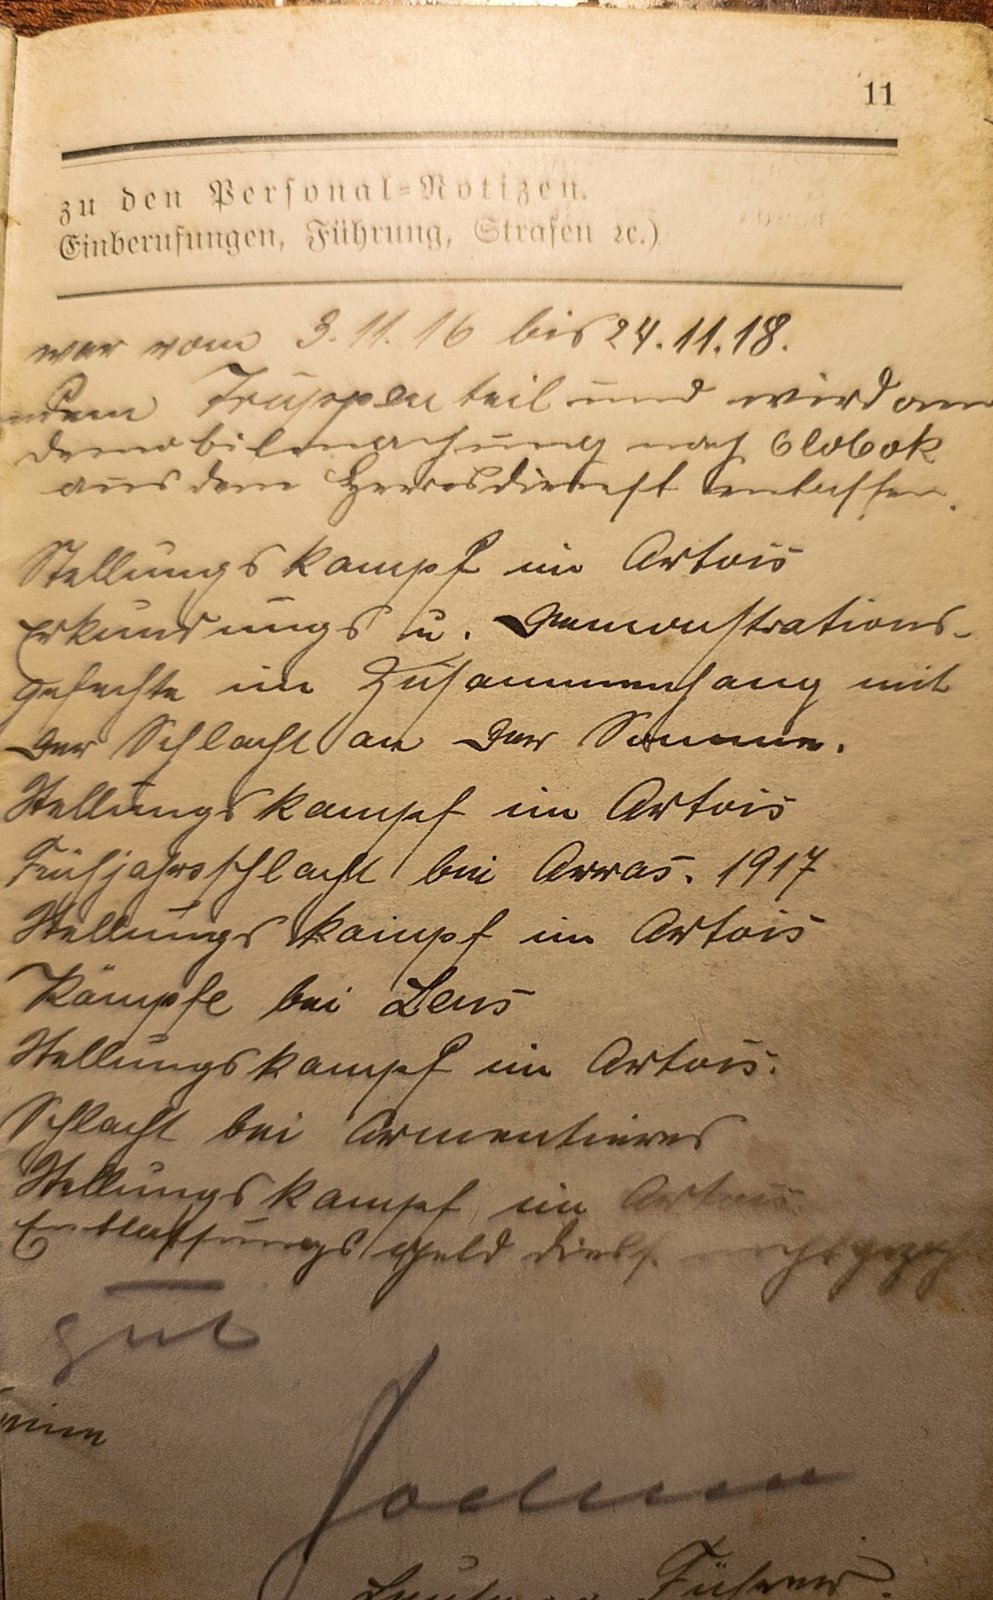 11
zu den Personal-Notizen.
Einberufungen, Führung, Strafen ⁊c.)
war vom 3.11.16 bis 24.11.18.
Truppenteil und wird
demobilmachung nach Globok
aus dem Heeresdienst entlassen.
Stellungskampf im Artois
Erkundungs u. Demonstrations-
gefechte im Zusammenhang mit
der Schlacht an der Somme.
Stellungskampf im Artois
Frühjahrsschlacht bei Arras. 1917
Stellungskampf im Artois
Kämpfe bei Lens
Stellungskampf im Artois.
Schlacht bei Armentieres
Stellungskampf im Artois
Entlassungsgeld
gut
Führer.